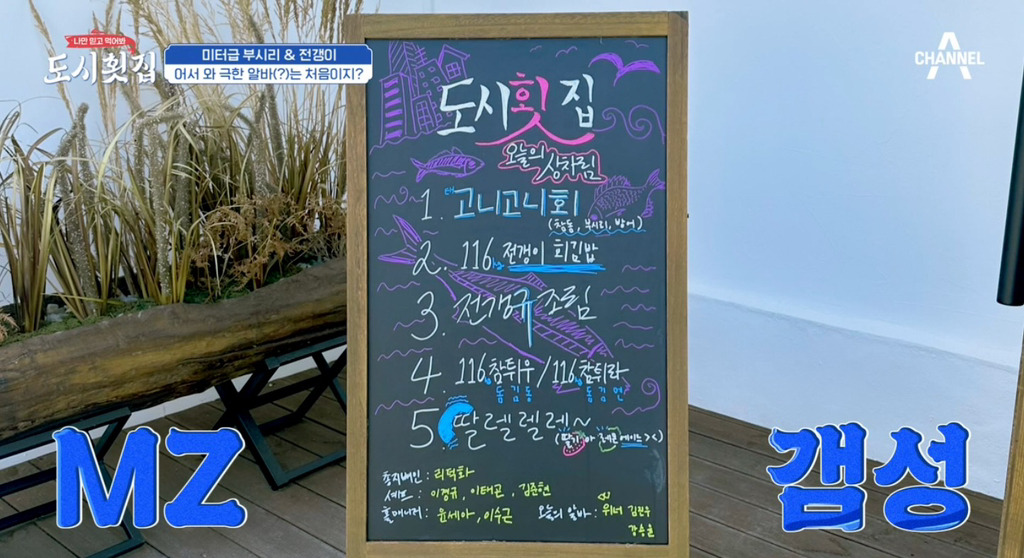 나만 믿고 먹어봐
도시횟집
미터급 부시리 & 전갱이
어서 와 극한 알바(?)는 처음이지?
CHANNEL A
도시횟집
오늘의 상차림
1. 고니고니회
(참돔, 부시리, 방어)
2. 116 전갱이 회김밥
3. 전갱규 조림
4. 116참튀우/116참튀라
5. 딸렐렐레~
레몬에이드 > <)
총지배인 : 리덕화
셰프 : 이경규, 이태곤, 김준현
홀매니저 : 윤세아, 이수근 오늘의 알바 : 위너 김진우
강승윤
MZ 갬성